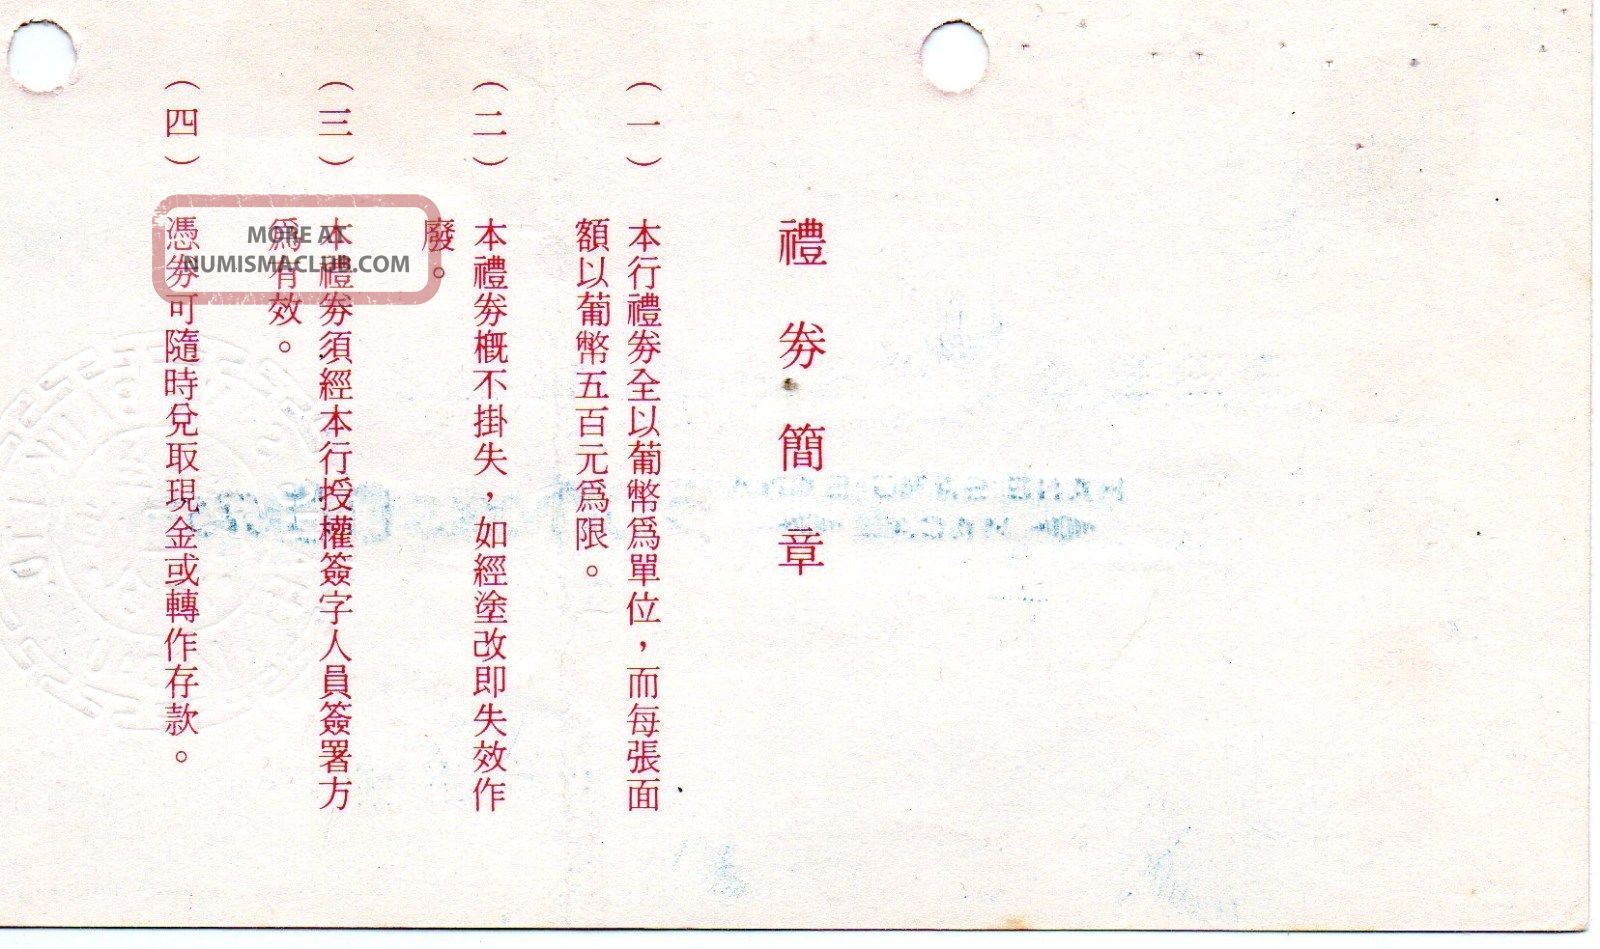 禮券簡章
（一） 本行禮券全以葡幣爲單位，而每張面
額以葡幣五百元爲限。
（二） 本禮券概不掛失，如經塗改即失效作
廢。
（三） 本禮券須經本行授權簽字人員簽署方
爲有效。
（四） 憑券可隨時兌取現金或轉作存款。
MORE AT
NUMISMACLUB.COM